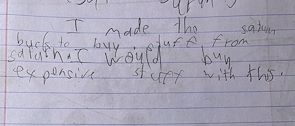 I made the saturn
buck to buy stuff from
saturn. I would buy
expensive stuff with this.